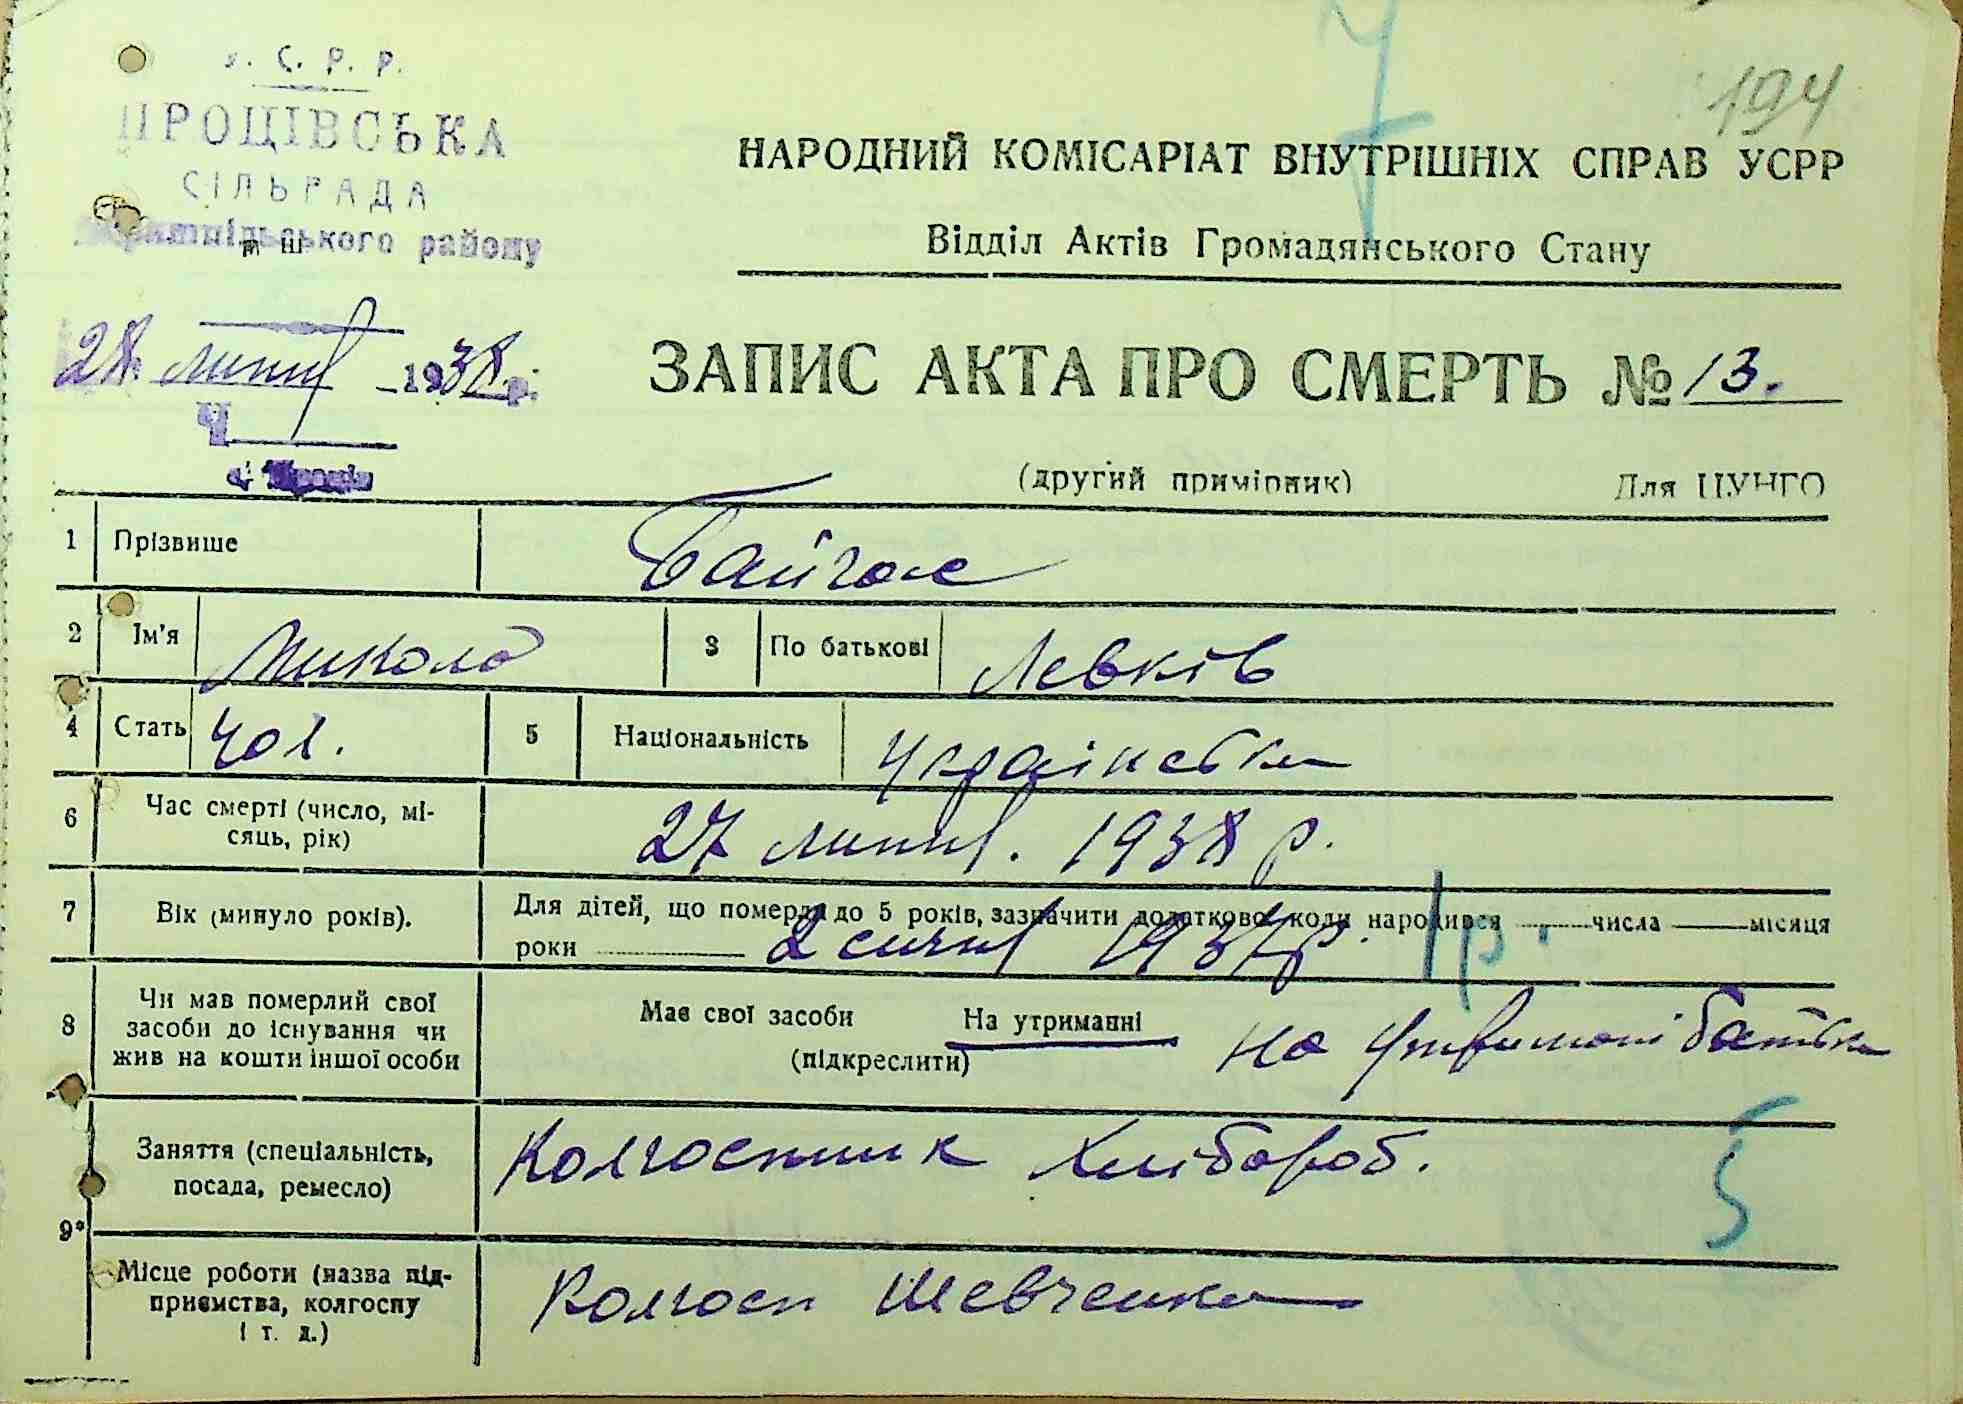 У. С. Р. Р.
194
7
ПРОЦІВСЬКА
СІЛЬРАДА
району
НАРОДНИЙ КОМІСАРІАТ ВНУТРІШНІХ СПРАВ УСРР
Відділ Актів Громадянського Стану
28 липня 1938 р.
ЗАПИС АКТА ПРО СМЕРТЬ № 13.
(другий примірник) Для ЦУНГО
1 Прізвише Байгас
2 Ім'я Микола 3 По батькові Левків
4 Стать чол. 5 Національність Українська
6 Час смерті (число, мі-
сяць, рік) 27 липня. 1938 р.
7 Вік (минуло років). Для дітей, що померли до 5 років, зазначити додатково, коли народився числа місяця
роки 2 січня 1937 р. 1 р.
8 Чи мав померлий свої
засоби до існування чи
жив на кошти іншої особи
Має свої засоби На утриманні
(підкреслити)
на утримані батька
Заняття (спеціальність,
посада, ремесло) Колгоспник Хлібороб.
5
9*
Місце роботи (назва під-
приємства, колгоспу
і т. д.) Колгосп Шевченка